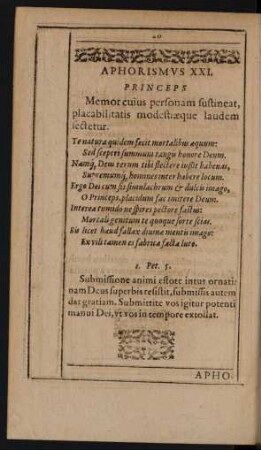 20
APHORISMVS XXI.
PRINCEPS
Memor cuius personam sustineat,
placabilitatis modestiæque laudem
sectetur.
Te natura quidem fecit mortalibus æquum:
Sed sceptri summum tangis honore Deum.
Namq́; Deus rerum tibi flectere iussit habenas,
Supremumq́; homines inter habere locum.
Ergo Dei cum sis simulachrum & dulcis imago,
O Princeps, placidum fac imitere Deum.
Interea tumido ne spires pectore fastus:
Mortali genitum te quoque sorte scias.
Sis licet haud fallax diuinæ mentis imago:
Ex vili tamen es fabrica facta luto.
1. Pet. 5.
Submissione animi estote intus ornati:
nam Deus superbis resistit, submissis autem
dat gratiam. Submittite vos igitur potenti
manui Dei, vt vos in tempore extollat.
APHO-